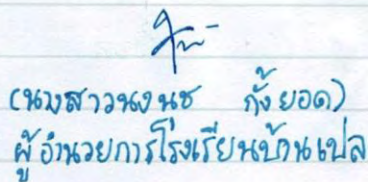 (นางสาวนงนุช กั้งยอด)
ผู้อำนวยการโรงเรียนบ้านเปล